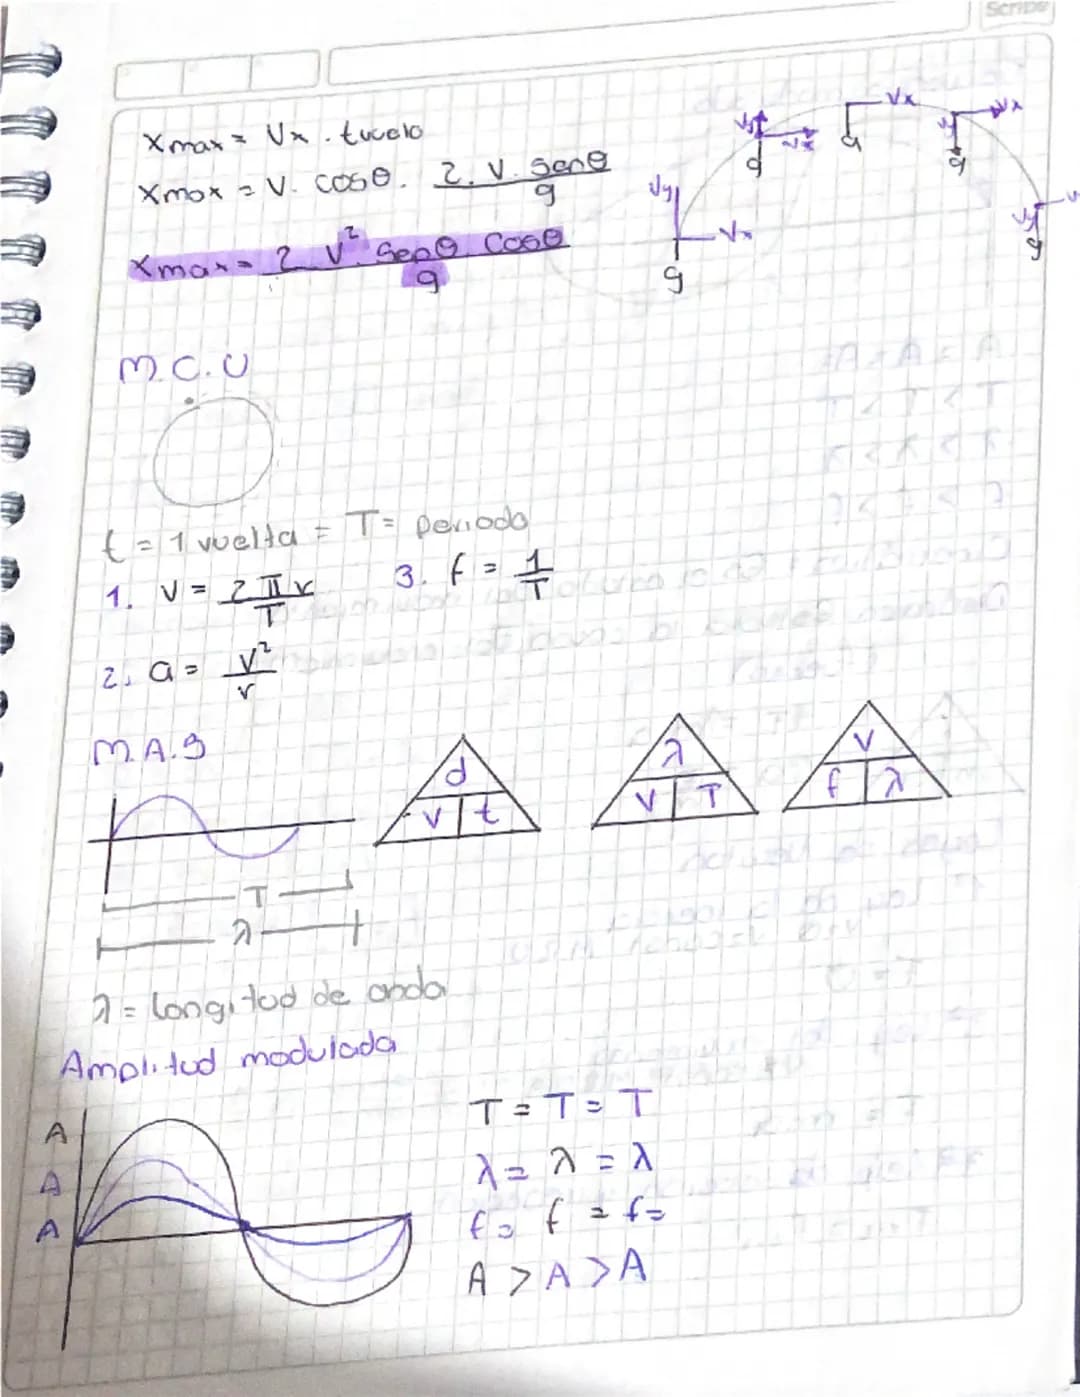 Scribe
Xmax = Vx . tvuelo
Xmax = V. cosθ. 2. V. senθ / g
Xmax = 2 V². senθ cosθ / g
Vy Vx g
Vy Vx g
Vx g
Vx Vy g
Vy g
M.C.U
t = 1 vuelta = T = periodo
1. V = 2πr / T
3. f = 1 / T
2. a = v² / r
M.A.S
d
v t
λ
V T
V
f λ
T
λ
λ = longitud de onda
Amplitud modulada
A
A
A
T = T = T
λ = λ = λ
f = f = f =
A > A > A